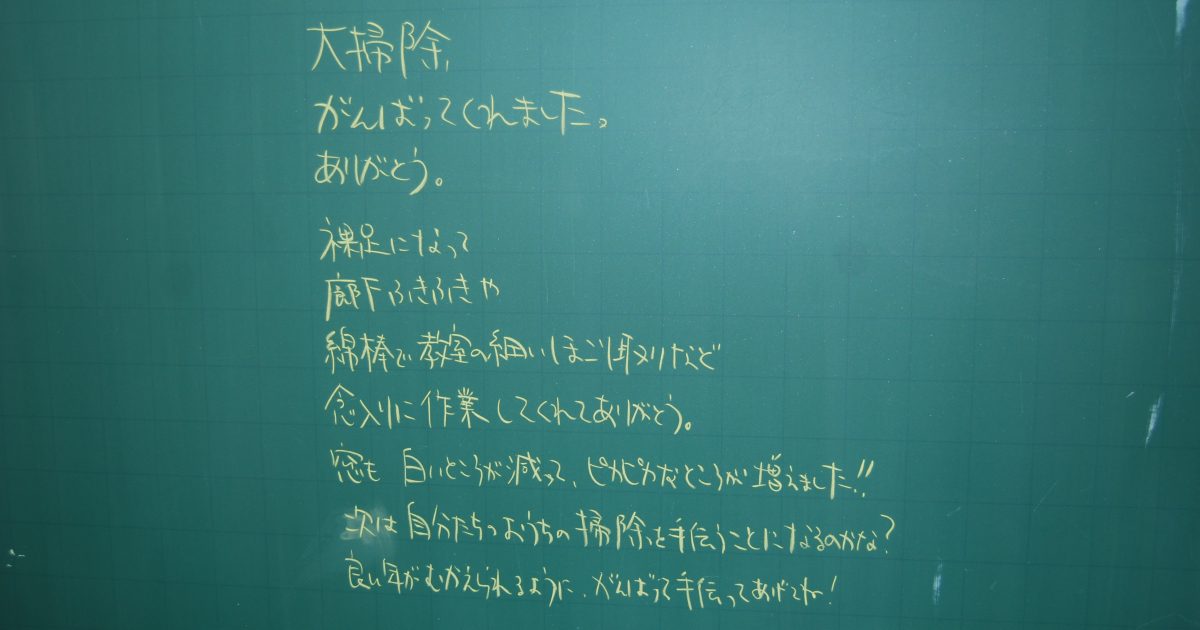 大掃除
がんばってくれました。
ありがとう。
裸足になって
廊下ふきふきや
綿棒で教室の細いほこり取りなど
念入りに作業してくれてありがとう。
窓も 白いところが減って、ピカピカなところが増えました!!
次は自分たちのおうちの掃除を手伝うことになるのかな?
良い年がむかえられるように、がんばって手伝ってあげてね!